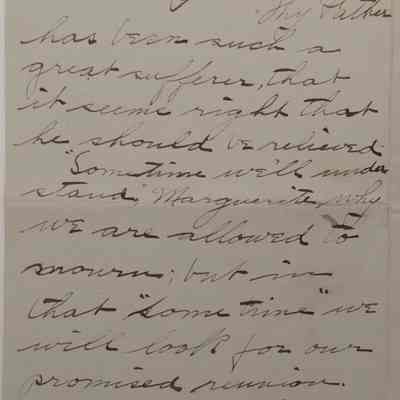 Thy Father
has been such a
great sufferer, that
it seems right that
he should be relieved.
"Sometime we'll under
stand," Marguerite, why
we are allowed to
mourn; but in
that "some time" we
will look for our
promised reunion.